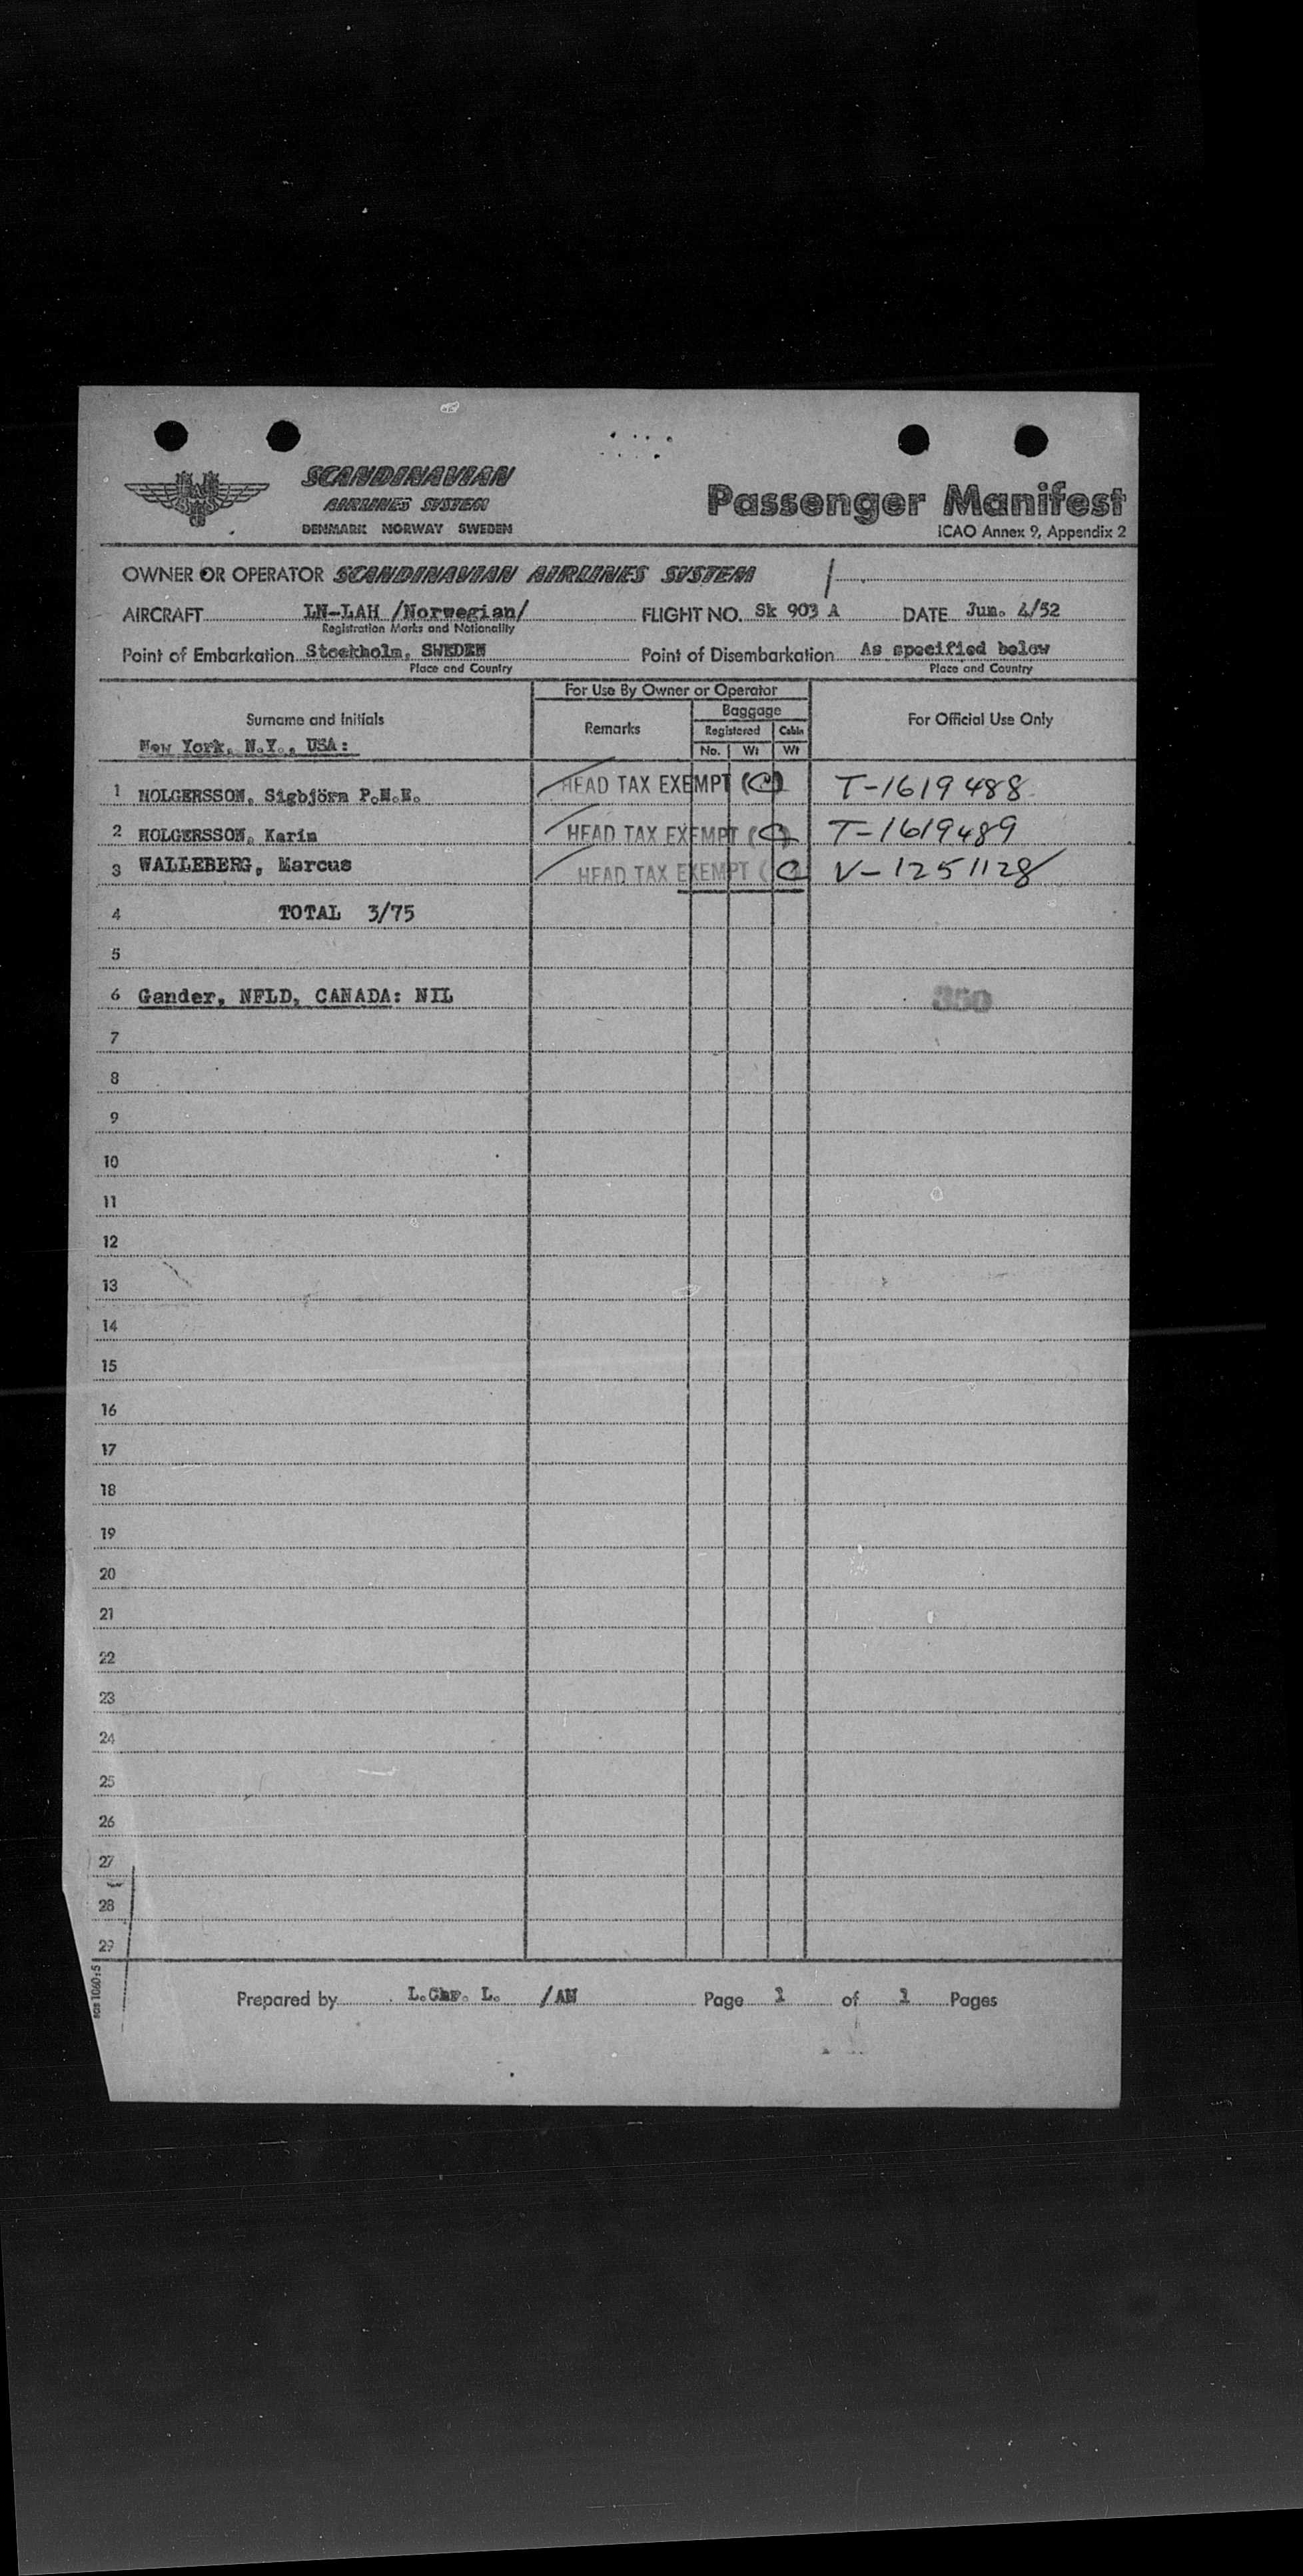 SCANDINAVIAN
AIRLINES SYSTEM
DENMARK NORWAY SWEDEN
Passenger Manifest
ICAO Annex 9, Appendix 2
OWNER OR OPERATOR SCANDINAVIAN AIRLINES SYSTEM
AIRCRAFT LN-LAH /Norwegian/ FLIGHT NO. Sk 903 A DATE Jun. 4/52
Registration Marks and Nationality
Point of Embarkation Stockholm, SWEDEN Point of Disembarkation As specified below
Place and Country Place and Country
For Use By Owner or Operator
Surname and Initials Remarks Baggage For Official Use Only
Registered Cabin
New York, N.Y., USA: No. Wt Wt
1 HOLGERSSON, Sigbjörn P.H.E. HEAD TAX EXEMPT (C) T-1619488
2 HOLGERSSON, Karin HEAD TAX EXEMPT (C) T-1619489
3 WALLEBERG, Marcus HEAD TAX EXEMPT (C) V-1251128
4 TOTAL 3/75
5
6 Gander, NFLD, CANADA: NIL 350
7
8
9
10
11
12
13
14
15
16
17
18
19
20
21
22
23
24
25
26
27
28
29
sas 1060:5
Prepared by L.Chr. L. /AN Page 1 of 1 Pages